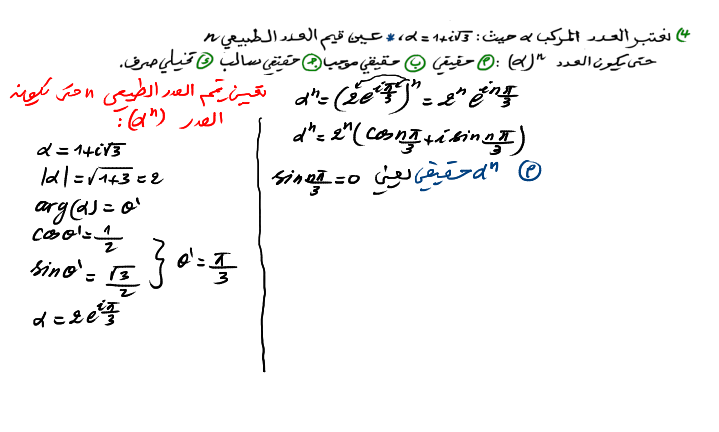 4) نعتبر العدد المركب α حيث: α = 1+i√3، * عين قيم العدد الطبيعي n
حتى يكون العدد (α)ⁿ: أ) حقيقي ب) حقيقي موجب ج) حقيقي سالب د) تخيلي صرف.
تعيين قيم العدد الطبيعي n حتى يكون
العدد (αⁿ):
α = 1+i√3
|α| = √1+3 = 2
arg(α) = θ'
cosθ' = 1/2
sinθ' = √3/2 } θ' = π/3
α = 2e^{iπ/3}
αⁿ = (2e^{iπ/3})ⁿ = 2ⁿ e^{inπ/3}
αⁿ = 2ⁿ(cos nπ/3 + i sin nπ/3)
أ) αⁿ حقيقي يعني sin nπ/3 = 0